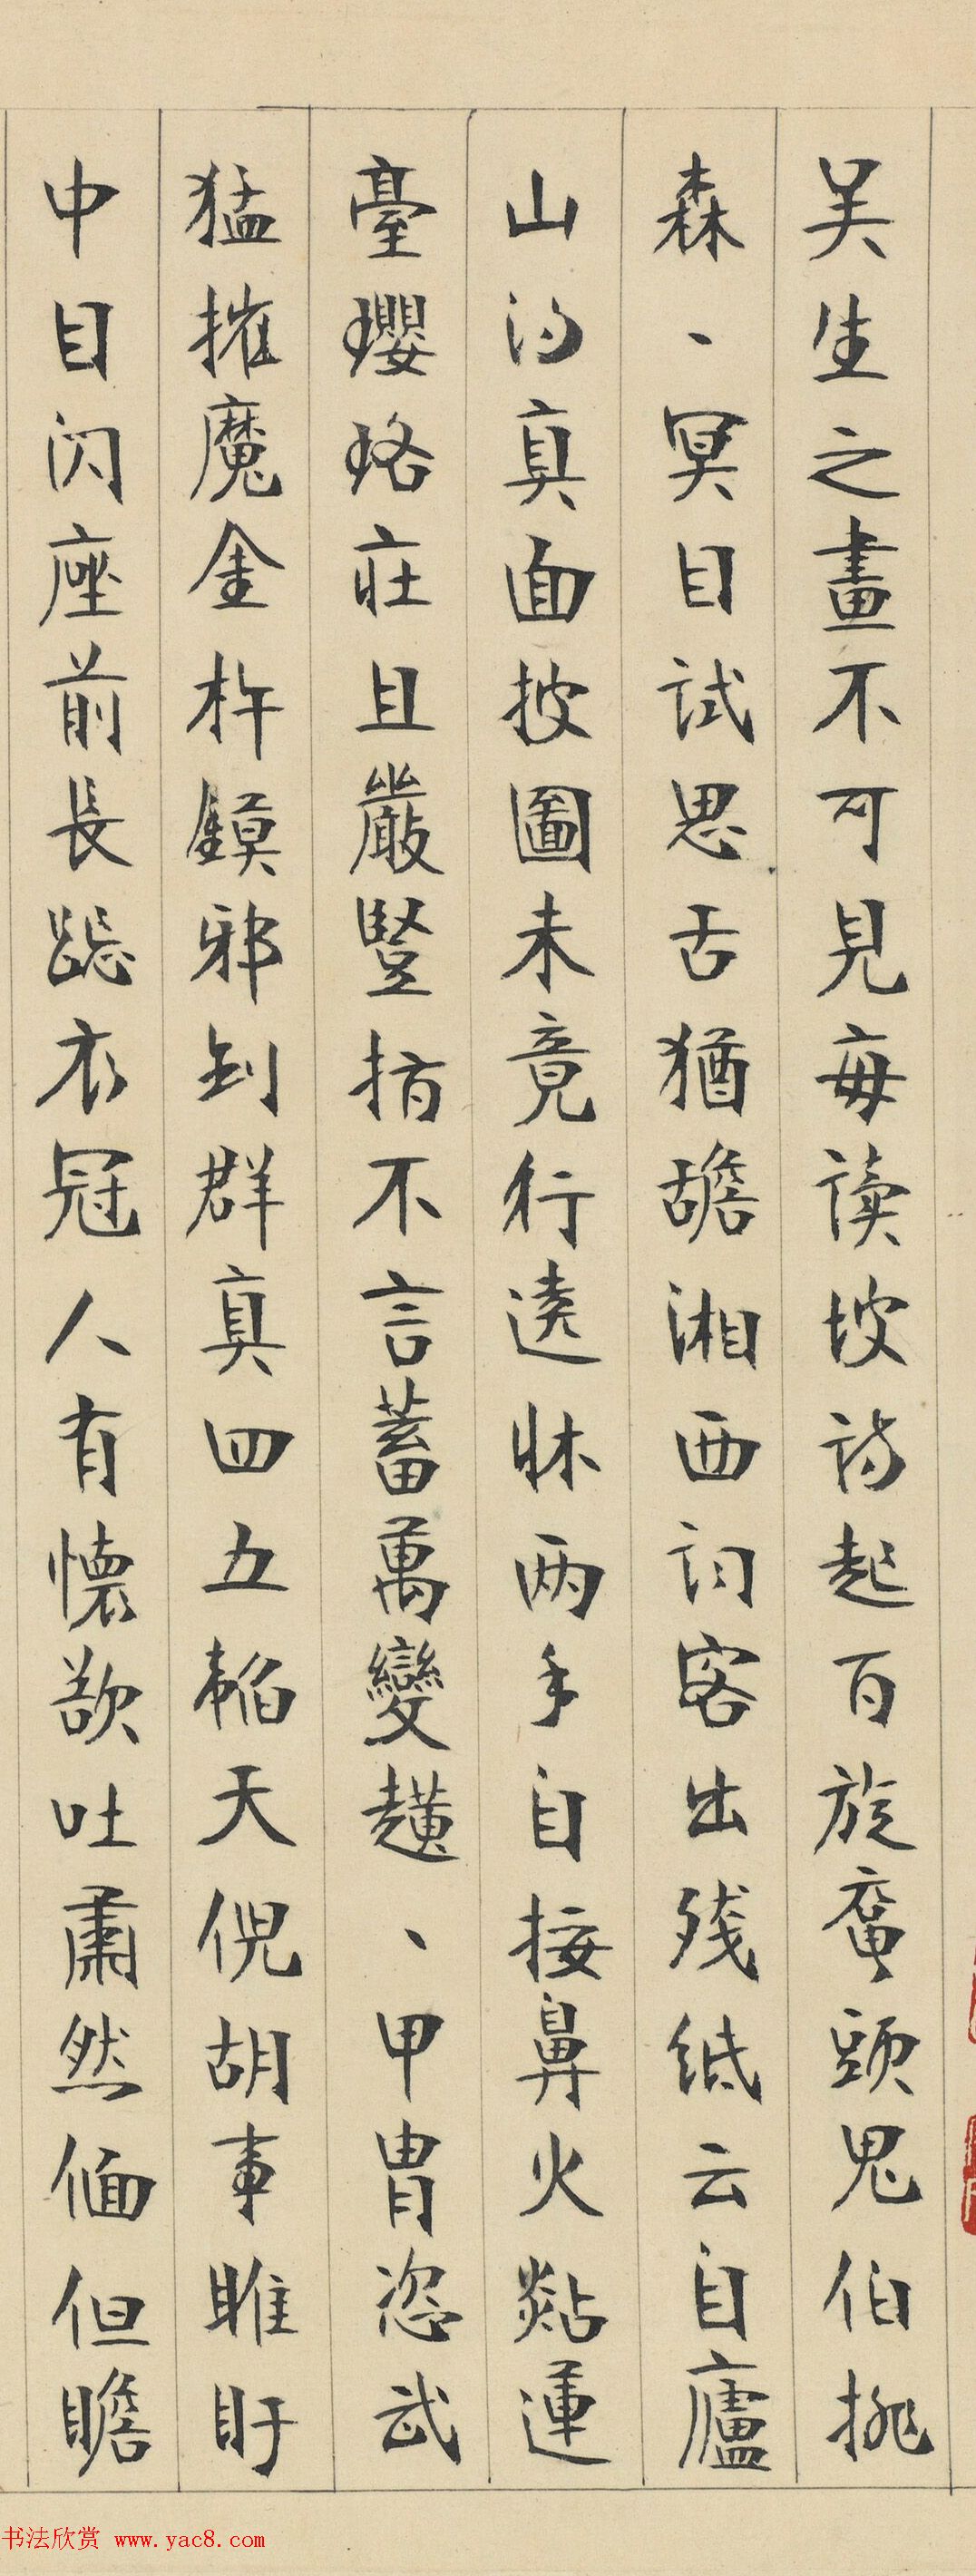 吴生之畫不可見每读坡詩起百族奮頭鬼伯挑
森丶冥目试思舌猶䑛湘西词客出残紙云自廬
山得真面披圖未竟行遶牀两手自接鼻火㸃運
臺瓔珞莊且嚴豎指不言蓄萬變趪丶甲胄恣武
猛摧魔金杵鏌邪剑群真四五韜天倪胡事睢盱
中目闪座前長跽衣冠人有懷欲吐肅然偭但瞻
书法欣赏 www.yac8.com